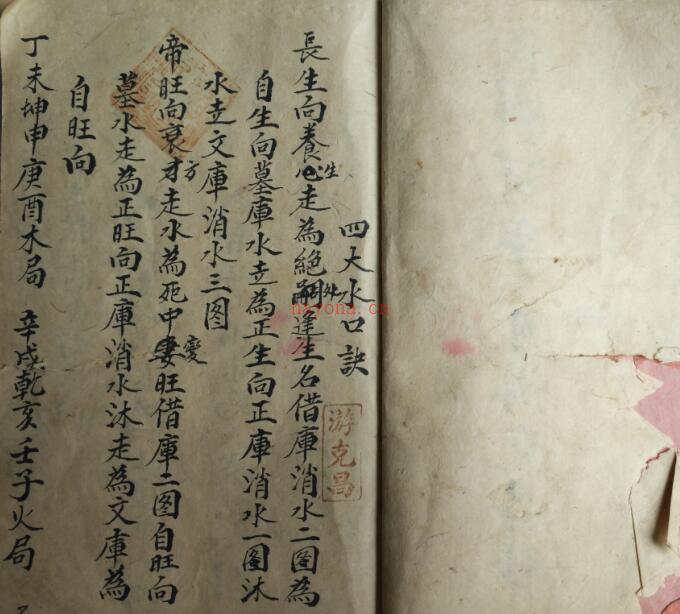 四大水口訣
游克昌
長生向養心走為絕嗣逢生名借庫消水二图為
生
处
自生向墓庫水走為正生向正庫消水一图沐
水走文庫消水三图
帝旺向衰才走水為死中婁旺借庫二图自旺向
方
變
墓水走為正旺向正庫消水沐走為文庫為
自旺向
丁未坤申庚酉木局 辛戌乾亥壬子火局
nayona.cn